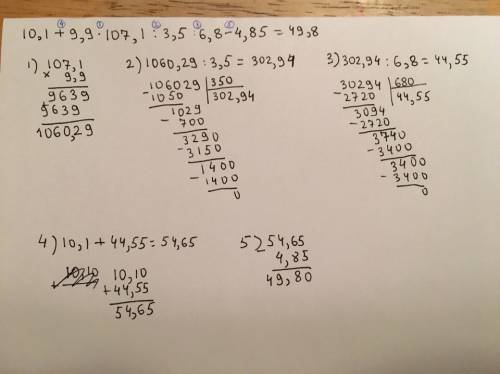 ④ ① ② ③ ⑤
10,1 + 9,9 · 107,1 : 3,5 : 6,8 - 4,85 = 49,8
1) 107,1
× 9,9
9639
+ 9639
1060,29
2) 1060,29 : 3,5 = 302,94
106029 | 350
- 1050 | 302,94
1029
- 700
3290
- 3150
1400
- 1400
0
3) 302,94 : 6,8 = 44,55
30294 | 680
- 2720 | 44,55
3094
- 2720
3740
- 3400
3400
- 3400
0
4) 10,1 + 44,55 = 54,65
10,10
+ 44,55
54,65
5) - 54,65
4,85
49,80